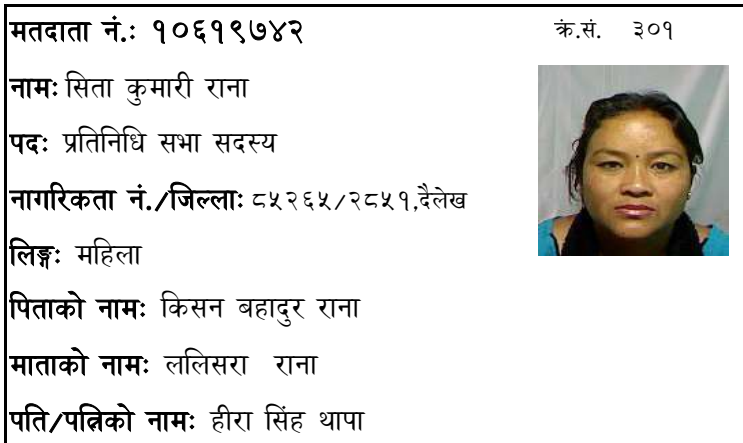 मतदाता नं.: १०६१९७४२ क्रं.सं. ३०१
नामः सिता कुमारी राना
पदः प्रतिनिधि सभा सदस्य
नागरिकता नं./जिल्लाः ८५२६५/२८५१,दैलेख
लिङ्गः महिला
पिताको नामः किसन बहादुर राना
माताको नामः ललिसरा राना
पति/पत्निको नामः हीरा सिंह थापा